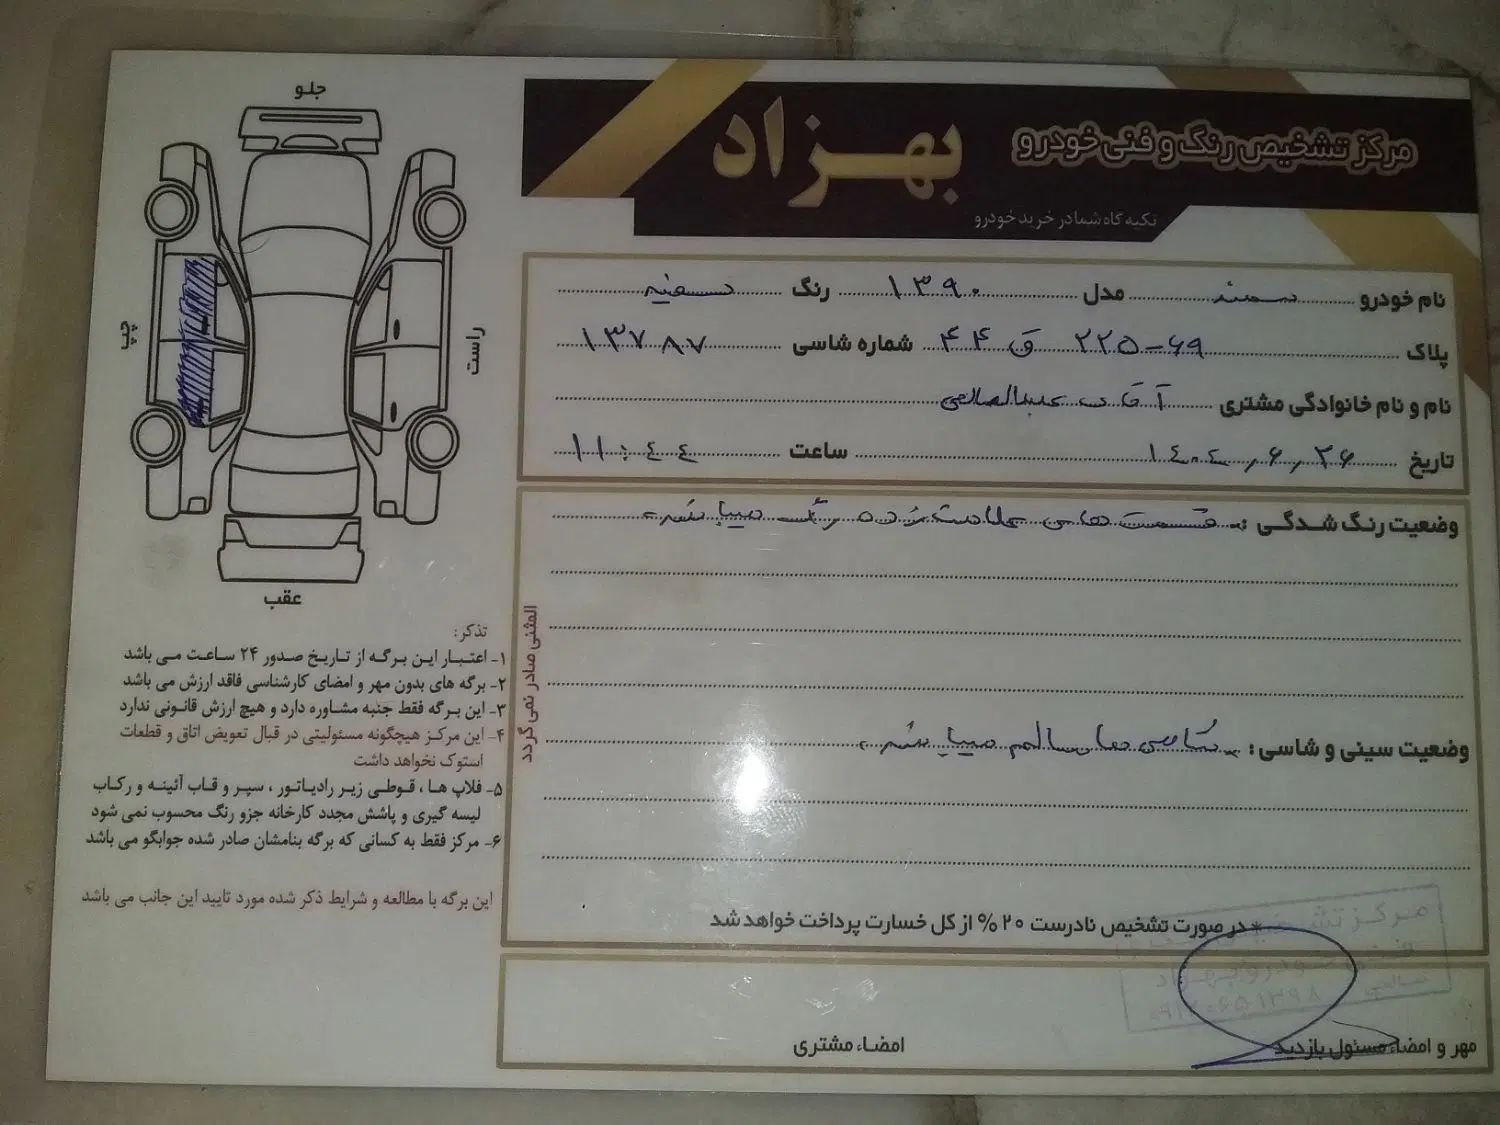 مرکز تشخیص رنگ و فنی خودرو
بهزاد
تکیه گاه شما در خرید خودرو
نام خودرو سمند مدل ۱۳۹۰ رنگ سفید
پلاک ۶۹-۲۲۵ ق ۴۴ شماره شاسی ۱۳۷۸۷
نام و نام خانوادگی مشتری آقای عبدالصالحی
تاریخ ۱۴۰۴/۶/۲۶ ساعت ۱۱:۴۴
وضعیت رنگ شدگی :- قسمت های علامت زده رنگ میباشد.
وضعیت سینی و شاسی :- شاسی ها سالم میباشد.
* در صورت تشخیص نادرست ۲۰% از کل خسارت پرداخت خواهد شد
مهر و امضاء مسئول بازدید
امضاء مشتری
مرکز تشخیص
فنی خودرو بهزاد
المثنی صادر نمی گردد
جلو
چپ
راست
عقب
تذکر:
۱- اعتبار این برگه از تاریخ صدور ۲۴ ساعت می باشد
۲- برگه های بدون مهر و امضای کارشناسی فاقد ارزش می باشد
۳- این برگه فقط جنبه مشاوره دارد و هیچ ارزش قانونی ندارد
۴- این مرکز هیچگونه مسئولیتی در قبال تعویض اتاق و قطعات
استوک نخواهد داشت
۵- فلاپ ها ، قوطی زیر رادیاتور ، سپر و قاب آئینه و رکاب
لیسه گیری و پاشش مجدد کارخانه جزو رنگ محسوب نمی شود
۶- مرکز فقط به کسانی که برگه بنامشان صادر شده جوابگو می باشد
این برگه با مطالعه و شرایط ذکر شده مورد تایید این جانب می باشد